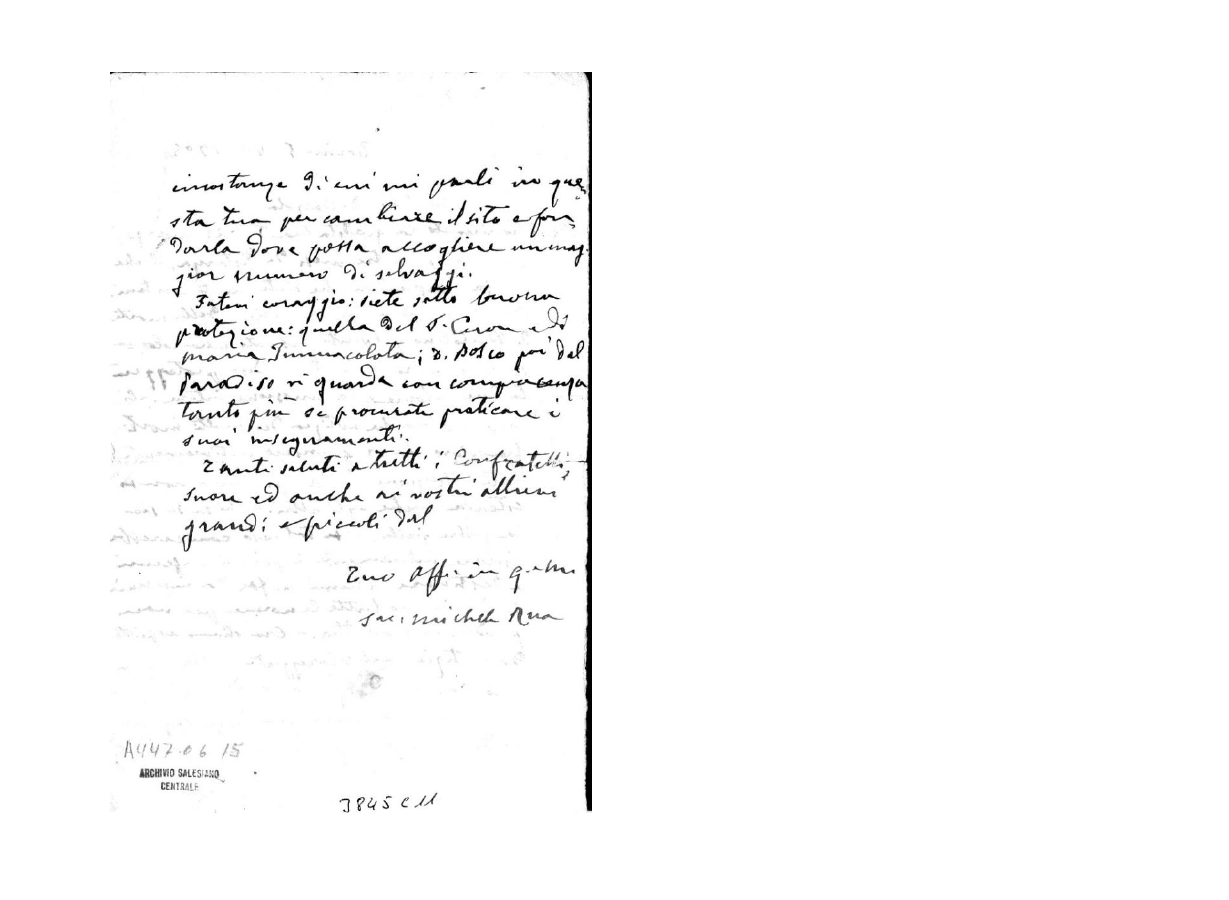 circostanze di cui mi parli in que-
sta tua per cambiare il sito e fon-
darla dove possa accogliere un mag-
gior numero di selvaggi.
Fatevi coraggio: siete sotto buona
protezione: quella del S. Cuore e di
Maria Immacolata; D. Bosco poi dal
Paradiso vi guarda con compiacenza
tanto più se procurate praticare i
suoi insegnamenti.
Tanti saluti a tutti i Confratelli,
suore ed anche ai vostri allievi
grandi e piccoli dal
Tuo aff. in G. e M.
Sac. Michele Rua
A447.06 15
ARCHIVIO SALESIANO
CENTRALE
3845 C 11